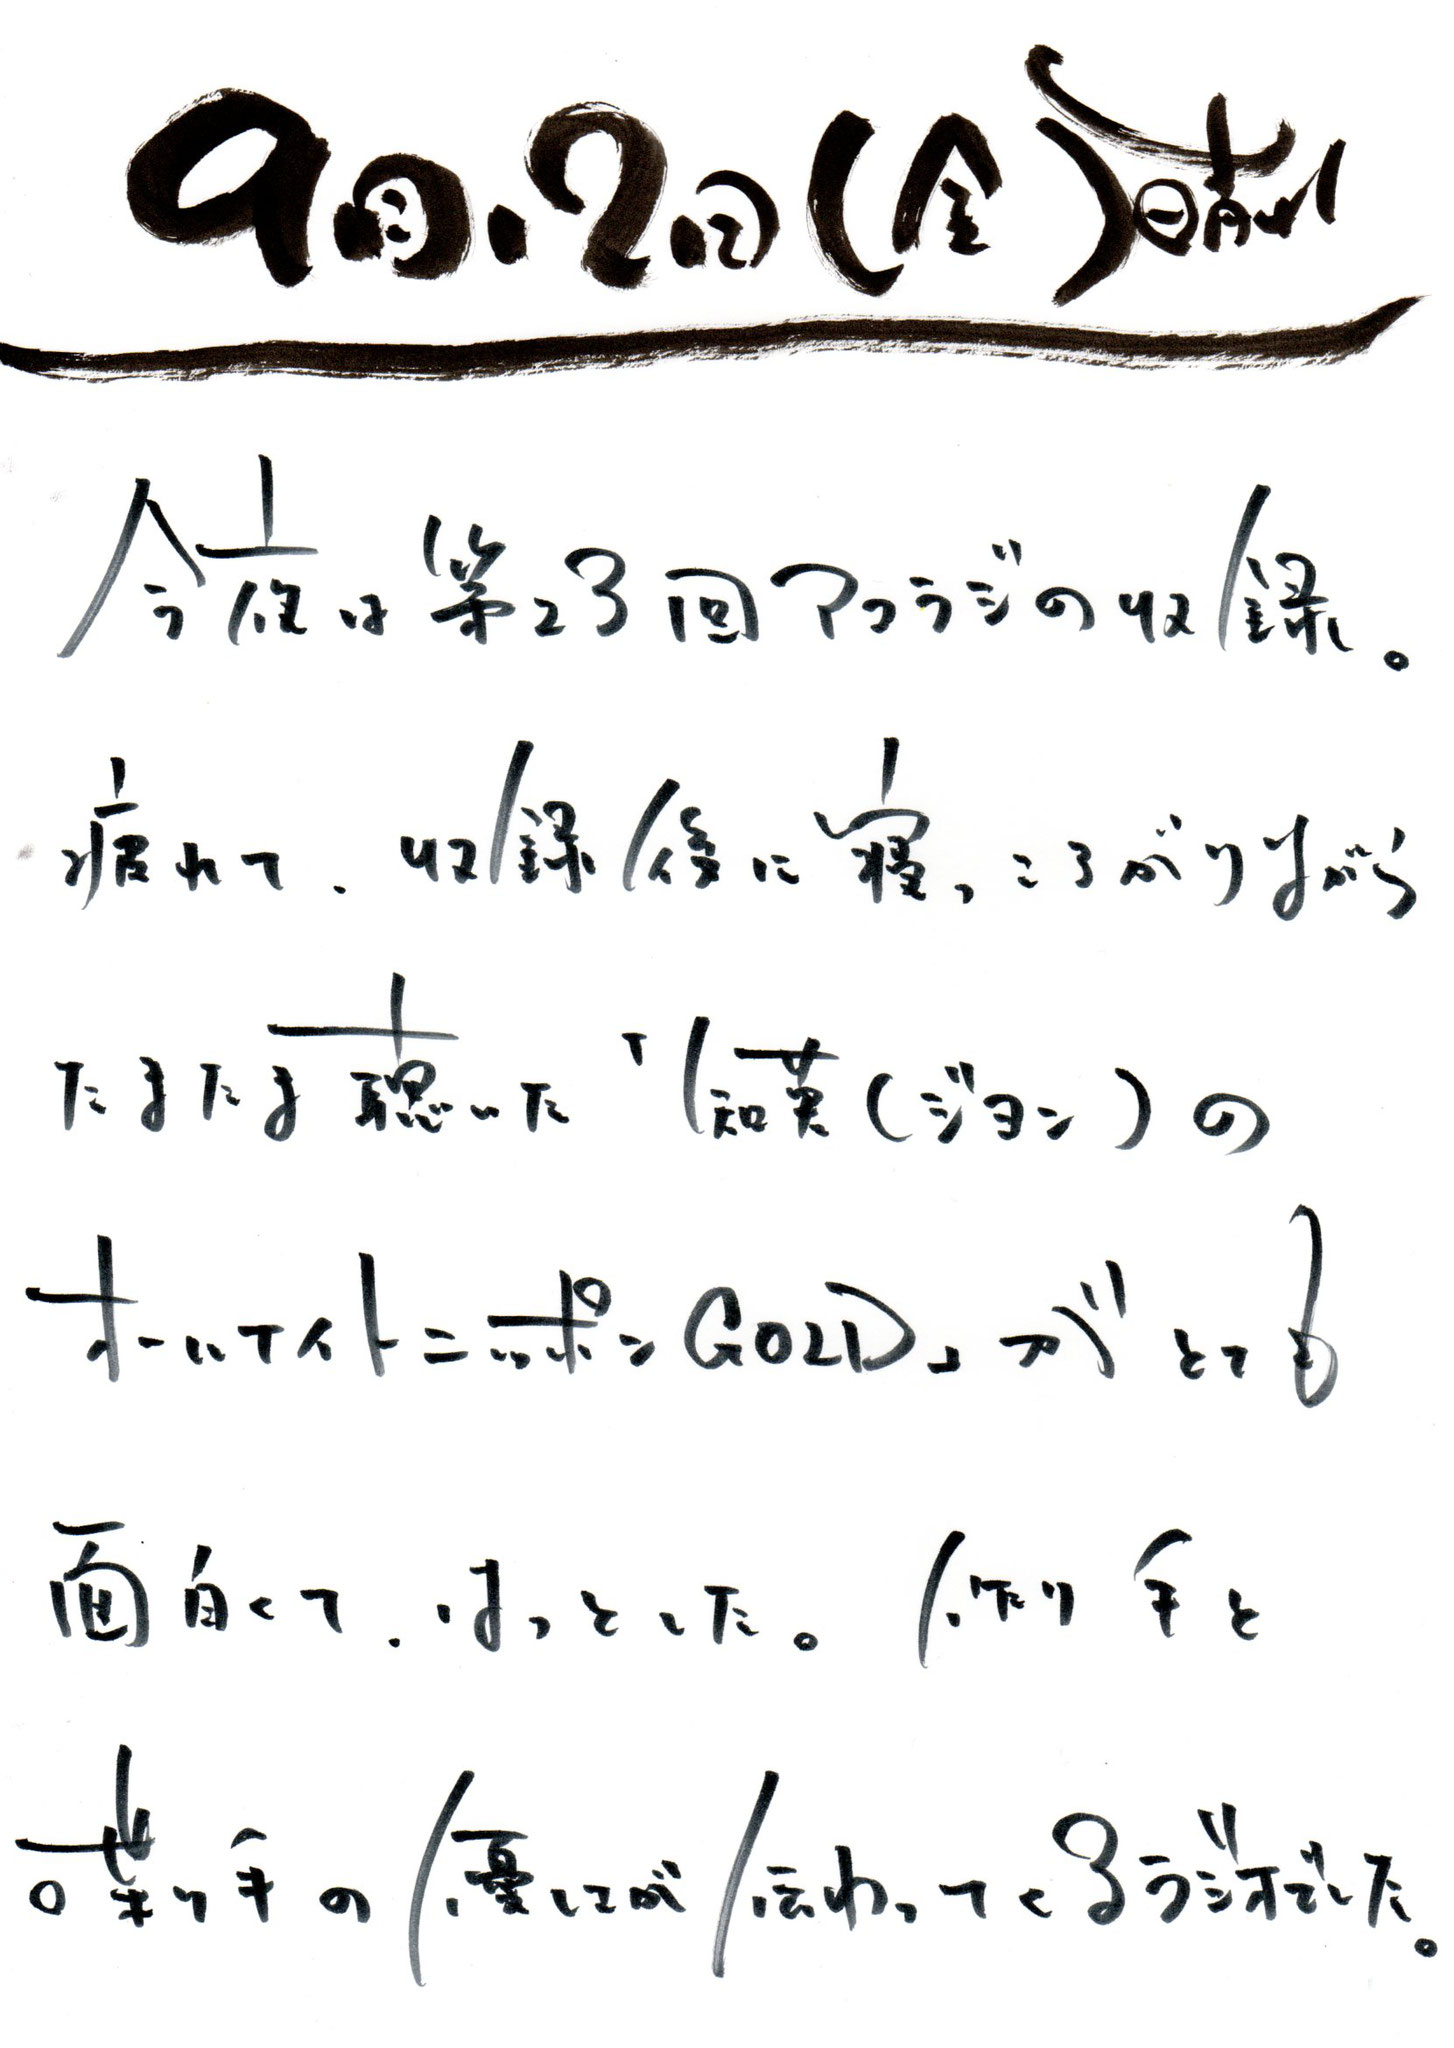 9月.2日(金)晴れ
今夜は第23回アコラジの収録。
疲れて、収録後に寝っころがりながら
たまたま聴いた「知英(ジヨン)の
オールナイトニッポンGOLD」がとても
面白くて、はっとした。作り手と
喋り手の優しさが伝わってくるラジオでした。